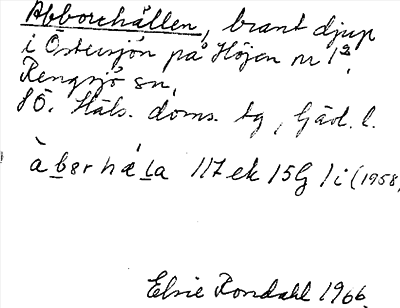 Abborrhällen, brant djup
i Östersjön på Höjen nr 1²,
Rengsjö sn,
SÖ. Häls. doms. tg, Gävl. l.
àberhæ̀la 117 ek 15G 1i (1958)
Elsie Rondahl 1966.